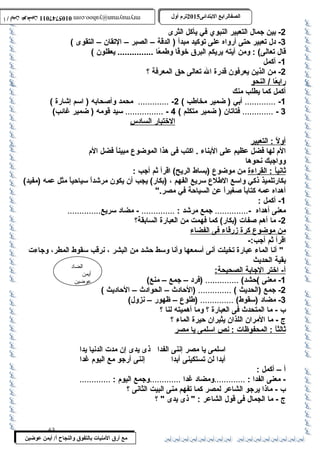 الصف الرابع الابتدائى2015ترم أول
maymuayman@yahoo.com 01057471011 أيمن عوضين
2- بين جمال التعبير النبوي في يأكل الثرى
3- دل تعبير حتى أرواه على توكيد مبدأ ( الدقة – الصبر – الإتقان – التقوى )
قال تعالى : ( ومن آيته يريكم البرق خوفا وطمعا ............... يعقلون )
1- أكمل
2- من الذين يعرفون قدرة الله تعالى حق المعرفة ؟
رابعا / النحو
أكمل كما يطلب منك
1- .............. أبي ( ضمير مخاطب ) 2- ............. محمد وأصحابه ( اسم إشارة )
3 - ............. فتاتان ( ضمير متكلم ) 4 - ............... سيد قومه ( ضمير غائب)
الاختبار السادس
أولا : التعبير
الأم لها فضل عظيم على الأبناء . اكتب فى هذا الموضوع مبينا فضل الأم
وواجبك نحوها
ثانيا : القراءة من موضوع (بساط الريح) اقرأ ثم أجب :
بكارتلميذ ذكي واسع الاطلاع سريع الفهم ، (بكار) يجب أن يكون مرشدا سياحيا مثل عمه (مفيد)
أهداه عمه كتابا صغيرا عن السياحة فى مصر."
1- أكمل :
معنى أهداه -............. جمع مرشد : ............. - مضاد سريع..............
2- ما أهم صفات (بكار) كما فهمت من العبارة السابقة؟
من موضوع كرة زرقاء فى الفضاء
اقرأ ثم أجب:-
" أنا الماء عبارة تخيلت أنى أسمعها وأنا وسط حشد من البشر ، نرقب سقوط المطر، وجاءت
بقية الحديث
أ- اختر الإجابة الصحيحة:
1- معنى (حشد) .............. (فرد – جمع – منع)
2- جمع (الحديث ) .............. (الأحداث – الحوادث – الأحاديث )
3- مضاد (سقوط) .............. (طلوع – ظهور – نزول)
ب - ما المتحدث فى العبارة ؟ وما أهميته لنا ؟
ج - ما الأمران اللذان يثيران حيرة الماء ؟
ثالثا : المحفوظات : نص اسلمى يا مصر
اسلمى يا مصر إننى الفدا ذى يدى إن مدت الدنيا يدا
أبدا لن تستكينى أبدا إننى أرجو مع اليوم غدا
أ – أكمل :
- معنى الفدا : ............ومضاد غدا .............وجمع اليوم : .............
ب - ماذا يرجو الشاعر لمصر كما تفهم منى البيت الثانى ؟
ج - ما الجمال فى قول الشاعر : " ذى يدى " ؟
مع أرق الأمنيات بالتفوق والنجاح أ/ أيمن عوضين